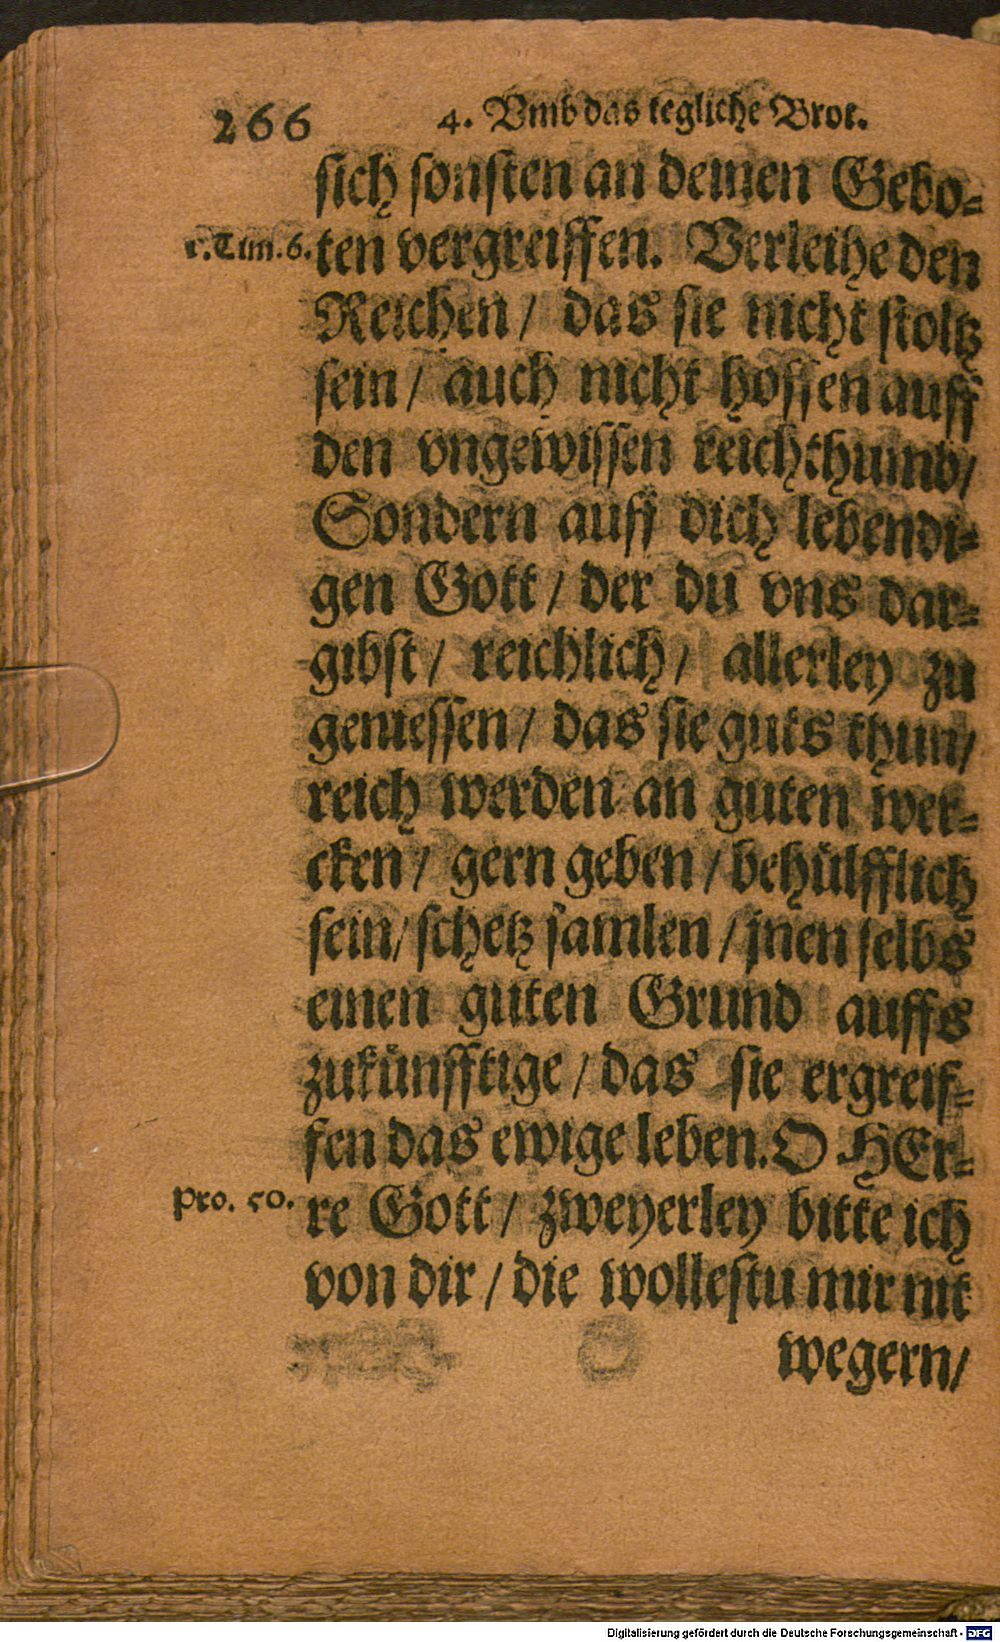 266 4. Vmb das tegliche Brot.
sich sonsten an deinen Gebo-
1. Tim. 6. ten vergreiffen. Verleihe den
Reichen / das sie nicht stoltz
sein / auch nicht hoffen auff
den vngewissen reichthumb /
Sondern auff dich lebendi-
gen Gott / der du vns dar-
gibst / reichlich / allerley zu
geniessen / das sie guts thun /
reich werden an guten wer-
cken / gern geben / behülfflich
sein / schetz samlen / jnen selbs
einen guten Grund auffs
zukünfftige / das sie ergreif-
fen das ewige leben. O HEr-
Pro. 50. re Gott / zweyerley bitte ich
von dir / die wollestu mir nit
wegern /
Digitalisierung gefördert durch die Deutsche Forschungsgemeinschaft - DFG